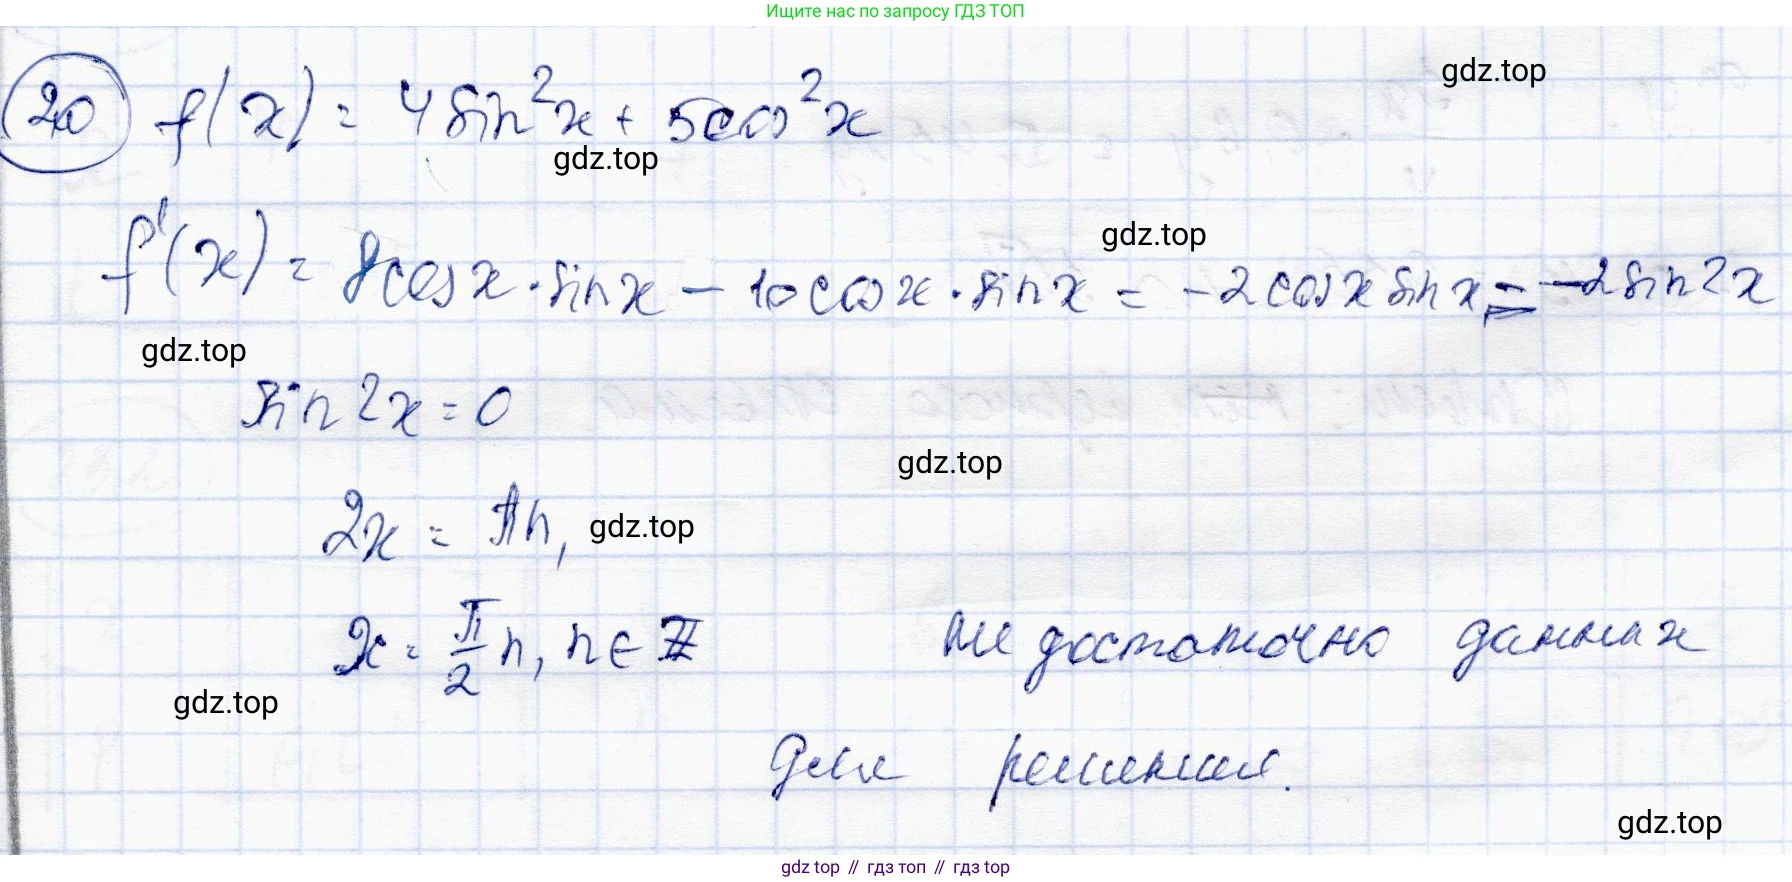 Ищите нас по запросу ГДЗ ТОП
gdz.top
20 f(x) = 4 sin²x + 5cos²x
gdz.top
gdz.top
f'(x) = 8cosx · sinx − 10cosx · sinx = −2cosx sinx = −2sin2x
gdz.top
sin2x = 0
gdz.top
2x = πn,
gdz.top
x = π/2 n, n ∈ Z не достаточно данных
gdz.top
для решения.
gdz.top
gdz top // гдз топ // gdz top